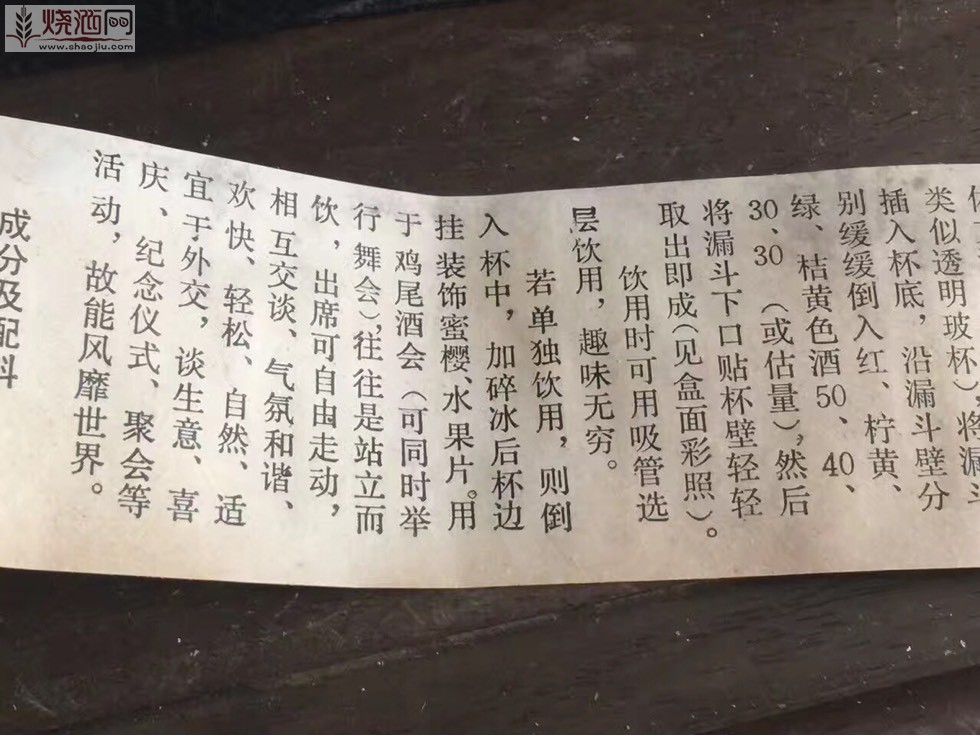 烧酒网
www.shaojiu.com
类似透明玻杯)，将漏斗
插入杯底，沿漏斗壁分
别缓缓倒入红、柠黄、
绿、桔黄色酒50、40、
30、30（或估量），然后
将漏斗下口贴杯壁轻轻
取出即成(见盒面彩照)。
饮用时可用吸管选
层饮用，趣味无穷。
若单独饮用，则倒
入杯中，加碎冰后杯边
挂装饰蜜樱、水果片。用
于鸡尾酒会（可同时举
行舞会)，往往是站立而
饮，出席可自由走动，
相互交谈、气氛和谐、
欢快、轻松、自然、适
宜于外交，谈生意、喜
庆、纪念仪式、聚会等
活动，故能风靡世界。
成分及配料